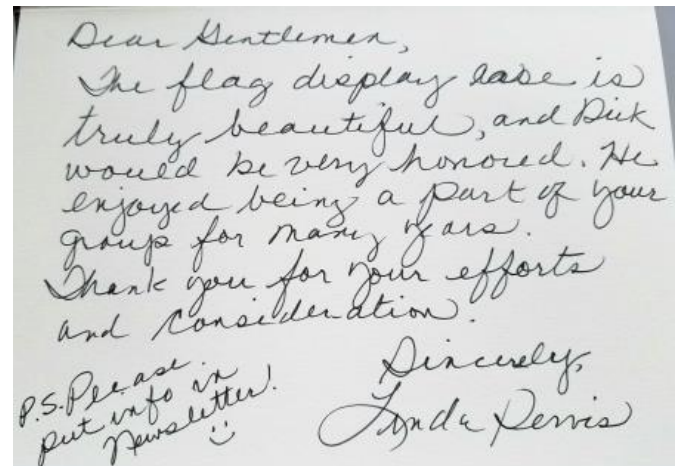 Dear Gentlemen,
The flag display case is
truly beautiful, and Dick
would be very honored. He
enjoyed being a part of your
group for many years.
Thank you for your efforts
and consideration.
Sincerely,
Lynda
P.S. Please
put info in
Newsletter!